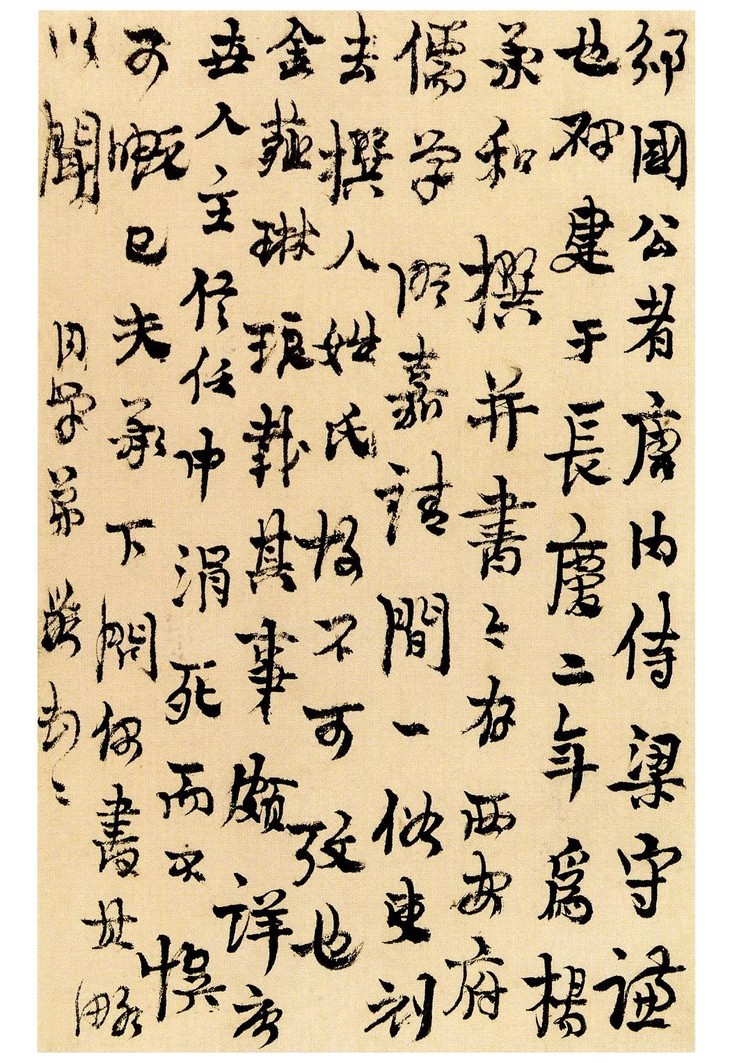 邠國公者唐内侍梁守謙
也碑建于長慶二年爲楊
承和撰并書〻存西安府
儒学嘉靖間一俗吏剗
去撰人姓氏故不可攷也
金薤琳琅載其事頗詳唐
世人主任中涓死而不悞
可慨已夫承下問便書其略
以聞 同學弟